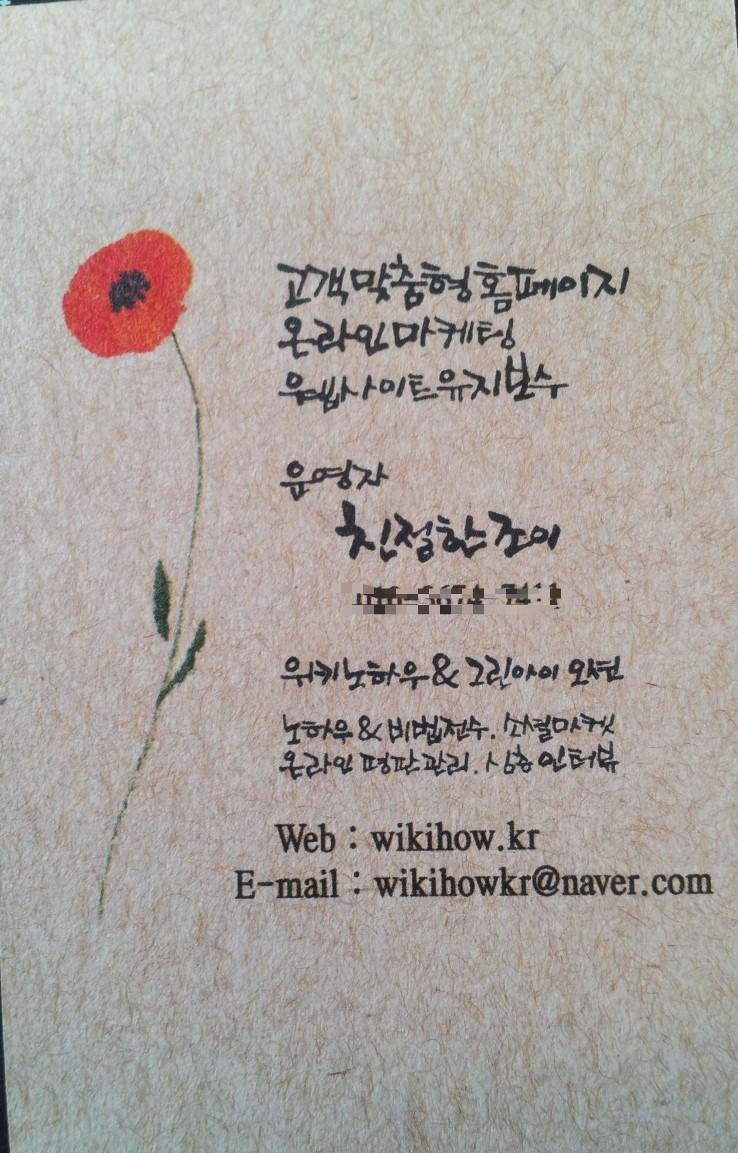 고객맞춤형홈페이지
온라인마케팅
웹사이트유지보수
운영자
친절한조이
위키노하우&그린아이 오션
노하우&비법전수. 소셜마켓
온라인 평판관리. 심층인터뷰
Web : wikihow.kr
E-mail : wikihowkr@naver.com